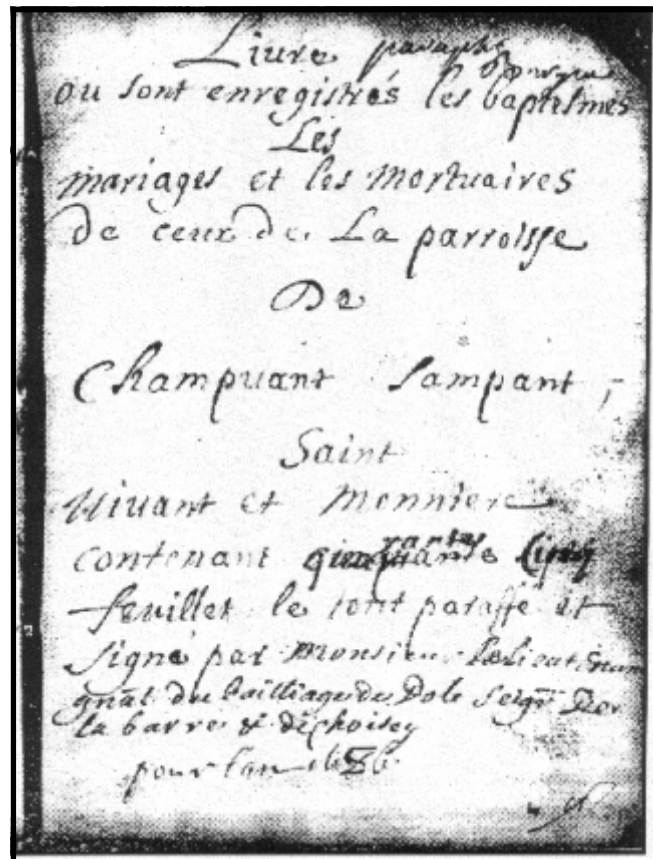 Liure paraphé
ou sont enregistrés les baptesmes
Les
mariages et les Mortuaires
de ceux de La parroisse
De
Champuant Sampant,
Saint
Uiuant et Monniere
contenant
feuillet le tout paraffé et
signé par Monsieur Le lieutenam
gnãt du bailliage du Dole Seigr De
la barre & dechoisey
pour lan